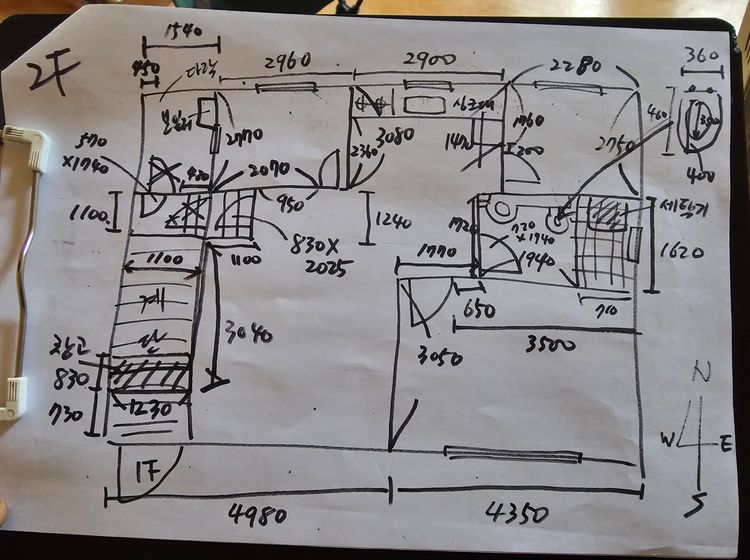 2F
1540
450
다락
2960
2900
2280
360
보일러
싱크대
460
350
400
2770
3080
2360
1470
1760
1200
2750
570
X1740
480
2070
950
1100
1240
1720
720
x1940
세탁기
1620
830X
2025
1100
1100
1770
1940
710
650
계
단
3040
3050
3500
창고
830
730
1230
1F
N
W
E
S
4980
4350